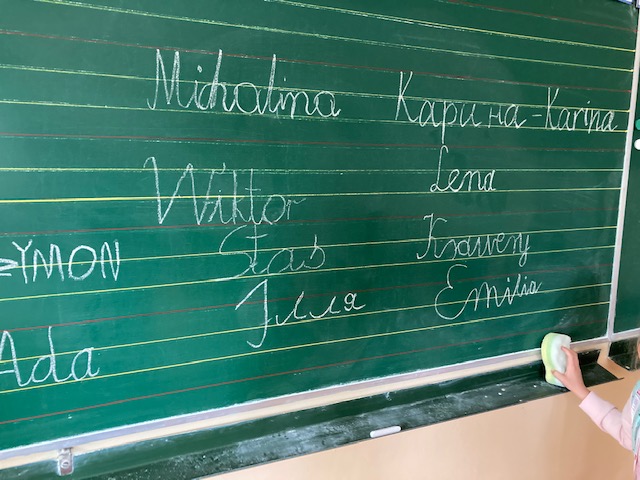 Michalina
Карина-Karina
Wiktor
Lena
ZYMON
Staś
Ksawery
Ілля
Emilia
Ada